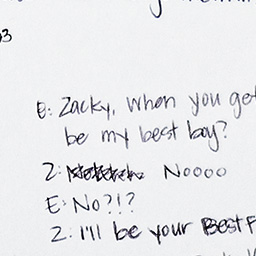 E: Zacky, when you get
be my best boy?
Z: Noooo
E: No?!?
Z: I'll be your Best F